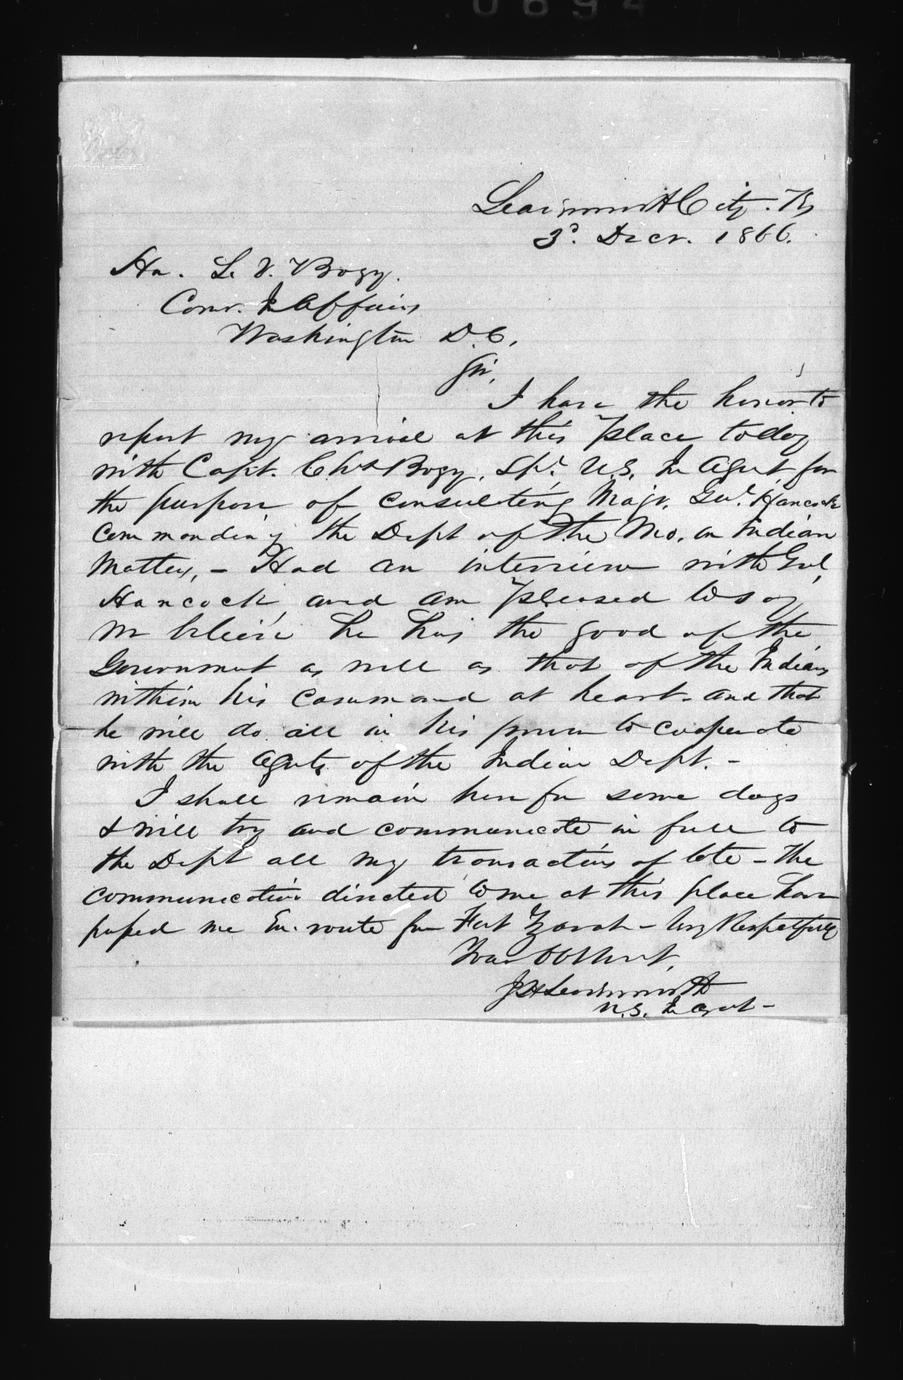 0694
Leavenworth City. Ks
3d Decr. 1866.
Hon. L. V. Bogy.
Comr. In Affairs
Washington D.C.
Sir,
I have the honor to
report my arrival at this place today
with Capt. Chas Bogy, Spl. U.S. In Agent, for
the purpose of consulting Majr. Genl Hancock
commanding the Dept of the Mo. on Indian
Matters, - Had an interview with Genl
Hancock, and am pleased to say
we believe he has the good of the
Government as well as that of the Indians
within his command at heart and that
he will do all in his power to cooperate
with the Agents of the Indian Dept. -
I shall remain here for some days
& will try and communicate in full to
the Dept all my transactions of late - The
communications directed to me at this place have
passed me En. route for Fort Zarah - Very Respectfully
Your Obt Servt,
J H Leavenworth
U.S. In Agent -